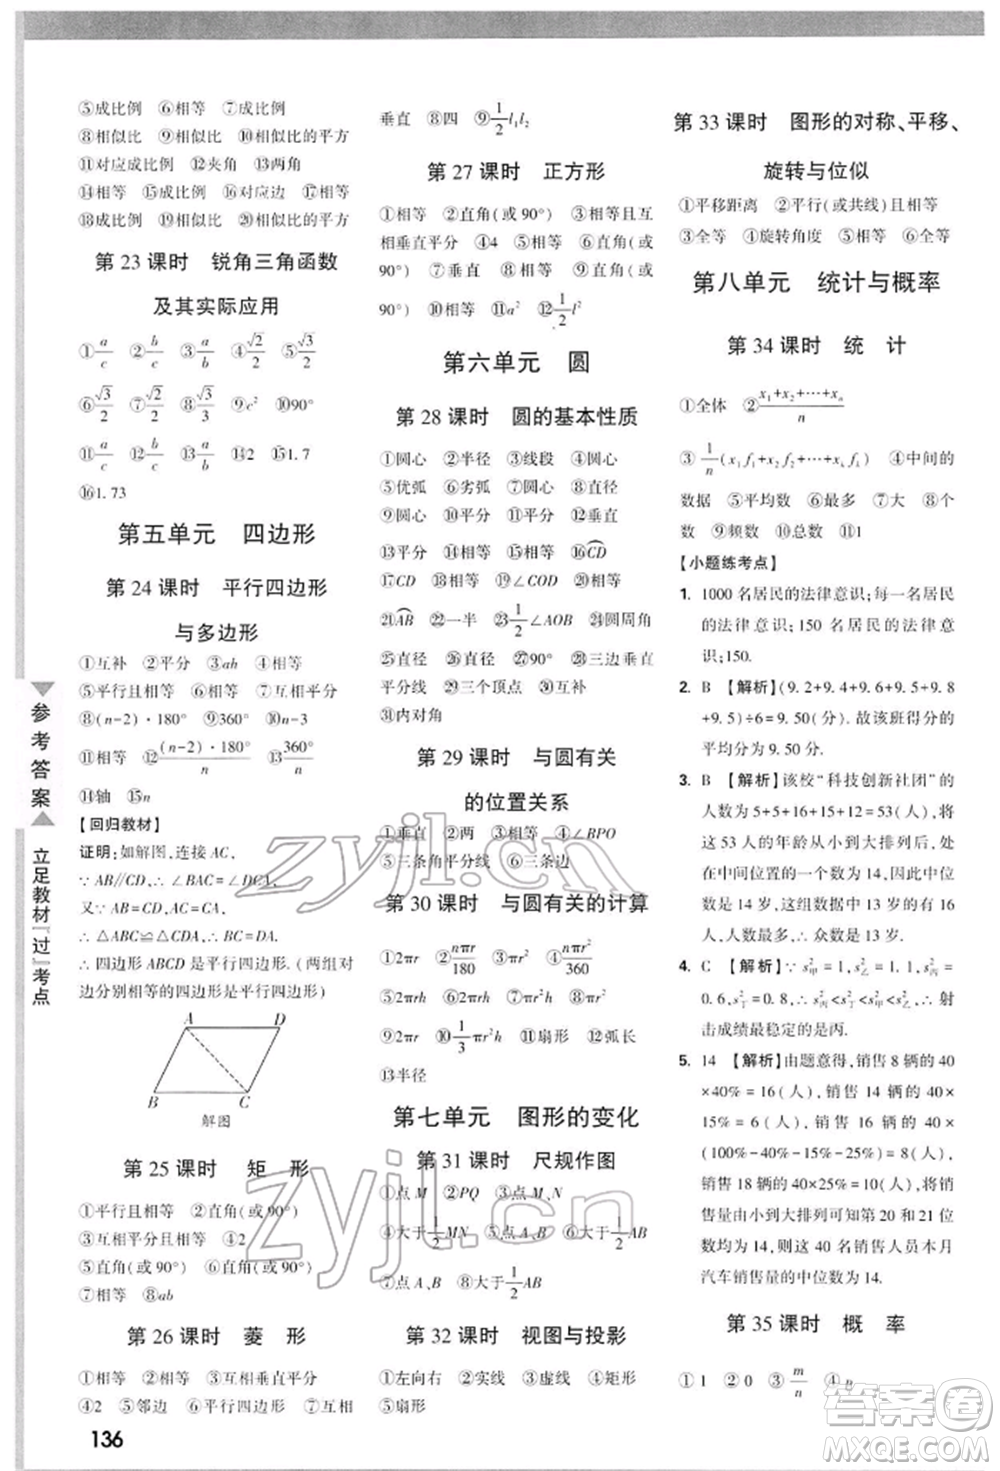 ⑤成比例 ⑥相等 ⑦成比例
⑧相似比 ⑨相似比 ⑩相似比的平方
⑪对应成比例 ⑫夹角 ⑬两角
⑭相等 ⑮成比例 ⑯对应边 ⑰相等
⑱成比例 ⑲相似比 ⑳相似比的平方
第 23 课时 锐角三角函数
及其实际应用
①a/c ②b/c ③a/b ④√2/2 ⑤√3/2
⑥√3/2 ⑦√2/2 ⑧√3/3 ⑨c² ⑩90°
⑪a/c ⑫b/c ⑬a/b ⑭2 ⑮1.7
⑯1.73
第五单元 四边形
第 24 课时 平行四边形
与多边形
①互补 ②平分 ③ah ④相等
⑤平行且相等 ⑥相等 ⑦平分
⑧(n-2)·180° ⑨360° ⑩n-3
⑪相等 ⑫(n-2)·180°/n ⑬360°/n
⑭轴 ⑮n
【回归教材】
证明:如解图,连接 AC,
∵ AB∥CD,∴ ∠BAC=∠DCA,
又∵ AB=CD,AC=CA,
∴ △ABC≌△CDA,∴ BC=DA,
∴ 四边形 ABCD 是平行四边形.(两组对
边分别相等的四边形是平行四边形)
A D
B C
解图
第 25 课时 矩 形
①平行且相等 ②直角(或 90°)
③互相平分且相等 ④2
⑤直角(或 90°) ⑥直角(或 90°)
⑦相等 ⑧ab
第 26 课时 菱 形
①相等 ②相等 ③互相垂直平分
④2 ⑤邻边 ⑥平行四边形 ⑦互相
136
垂直 ⑧四 ⑨1/2 l₁l₂
第 27 课时 正方形
①相等 ②直角(或 90°) ③相等且互
相垂直平分 ④4 ⑤相等 ⑥直角(或
90°) ⑦垂直 ⑧相等 ⑨直角(或
90°) ⑩相等 ⑪a² ⑫1/2 l²
第六单元 圆
第 28 课时 圆的基本性质
①圆心 ②半径 ③线段 ④圆心
⑤优弧 ⑥劣弧 ⑦圆心 ⑧直径
⑨圆心 ⑩平分 ⑪平分 ⑫垂直
⑬平分 ⑭相等 ⑮相等 ⑯CD
⑰CD ⑱相等 ⑲∠COD ⑳相等
㉑AB ㉒一半 ㉓1/2∠AOB ㉔圆周角
㉕直径 ㉖直径 ㉗90° ㉘三边垂直
平分线 ㉙三个顶点 ㉚互补
㉛内对角
第 29 课时 与圆有关
的位置关系
①垂直 ②两 ③相等 ④∠BPO
⑤三条角平分线 ⑥三条边
第 30 课时 与圆有关的计算
①2πr ②nπr/180 ③πr² ④nπr²/360
⑤2πrh ⑥πr² ⑦2πr ⑧πr²h
⑨2πr ⑩1/3πr²h ⑪扇形 ⑫弧长
⑬半径
第七单元 图形的变化
第 31 课时 尺规作图
①点 M ②PQ ③点 M、N
④大于1/2MN ⑤点 A、B ⑥大于1/2AB
⑦点 A、B ⑧大于1/2AB
第 32 课时 视图与投影
①左向右 ②实线 ③虚线 ④相等
⑤扇形
第 33 课时 图形的对称、平移、
旋转与位似
①平移距离 ②平行(或共线)且相等
③全等 ④旋转角度 ⑤相等 ⑥全等
第八单元 统计与概率
第 34 课时 统 计
①全体 ②x₁+x₂+…+xₙ/n
③1/n(x₁f₁+x₂f₂+…+xₖfₖ) ④中间的
数据 ⑤平均数 ⑥最多 ⑦大 ⑧个
数 ⑨频数 ⑩总数 ⑪1
【小题练考点】
1. 1000 名居民的法律意识;每一名居民
的法律意识;150 名居民的法律意
识;150.
2. B 【解析】(9.2+9.4+9.6+9.5+9.8
+9.5)÷6=9.50(分). 故该班得分的
平均分为 9.50 分.
3. B 【解析】该校“科技创新社团”的
人数为 5+5+16+15+12=53(人),将
这 53 人的年龄从小到大排列后,
处在中间位置的一个数为 14,因此中
位数是 14 岁,这组数据中 13 岁出现
人数最多,∴ 众数是 13 岁.
4. C 【解析】∵ s²甲=1,s²乙=1.1,s²丙=
0.6,s²丁=0.8,∴ s²丙<s²丁<s²甲<s²乙,∴ 射
击成绩最稳定的是丙.
5. 14 【解析】由题意得,销售 8 辆的 40
×40%=16(人),销售 14 辆的 40×15%
=6(人),销售 16 辆的 40×
(100%-40%-15%-20%)=10(人),
销售 12 辆的 40×20%=8(人),将销
售量由小到大排列可知第 20 和 21 位
都为 14,则这 40 名销售人员本月
汽车销售量的中位数为 14.
第 35 课时 概 率
①1 ②0 ③m/n ④p
参考答案
立足教材『过』考点
zyjl.cn
zyjl.cn
答案圈
MXQE.COM